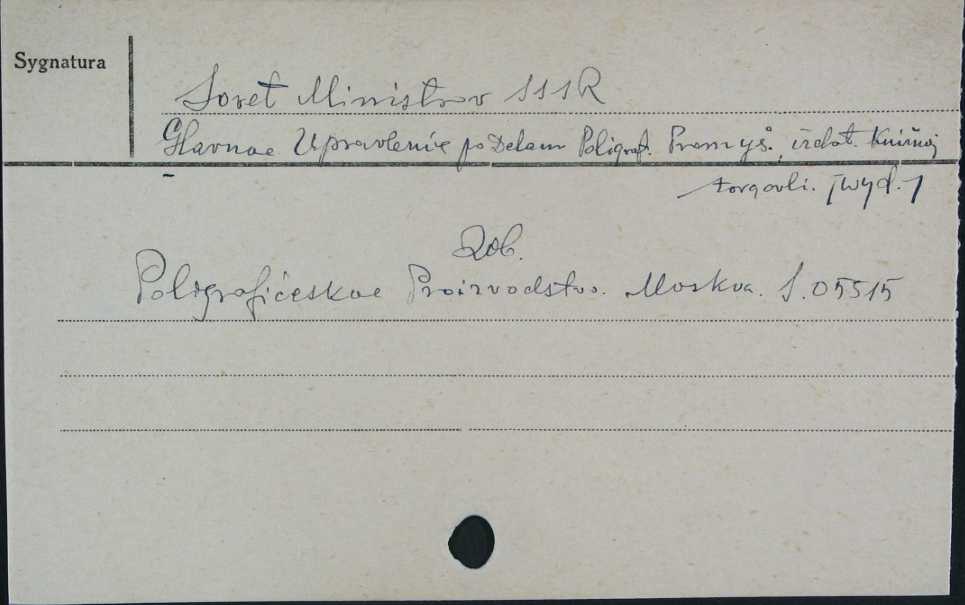 Sygnatura
Sovet Ministrov SSSR
Glavnoe Upravlenie po Delam Poligraf. Promyš., izdat. Knižnoj
torgovli. [wyd.]
Zob.
Poligrafičeskoe Proizvodstvo. Moskva. S.05515